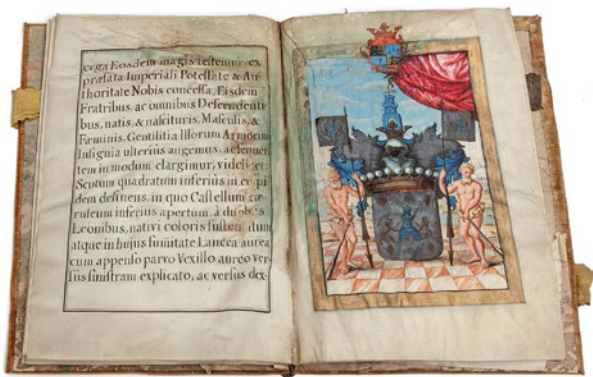 erga Eosdem magis testemur, ex
præfata Imperiali Potestate & Au-
thoritate Nobis concessa, Eisdem
Fratribus, ac omnibus Descendenti-
bus, natis, & nascituris, Masculis, &
Fæminis, Gentilitia Illorum Armorum
Insignia ulterius augemus, ac sequen-
tem in modum elargimur, videlicet:
Scutum quadratum inferius in cuspi-
dem desinens, in quo Castellum cæ-
ruleum inferius apertum, à duobus
Leonibus, nativi coloris susten dum
atque in hujus sumitate Lancea aurea
cum appenso parvo Vexillo aureo ver-
sus sinistram explicato, ac versus dex-